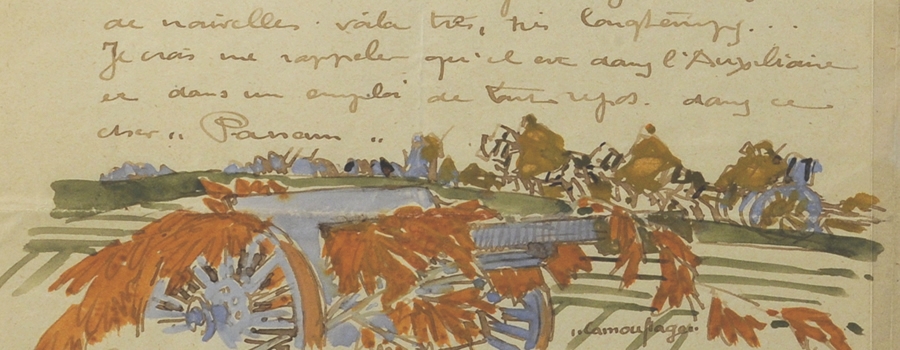 de nouvelles. voila très, très longtemps...
Je crois me rappeler qu'il est dans l'Auxiliaire
et dans un emploi de tout repos. dans ce
cher „ Paname „
„Camouflage„